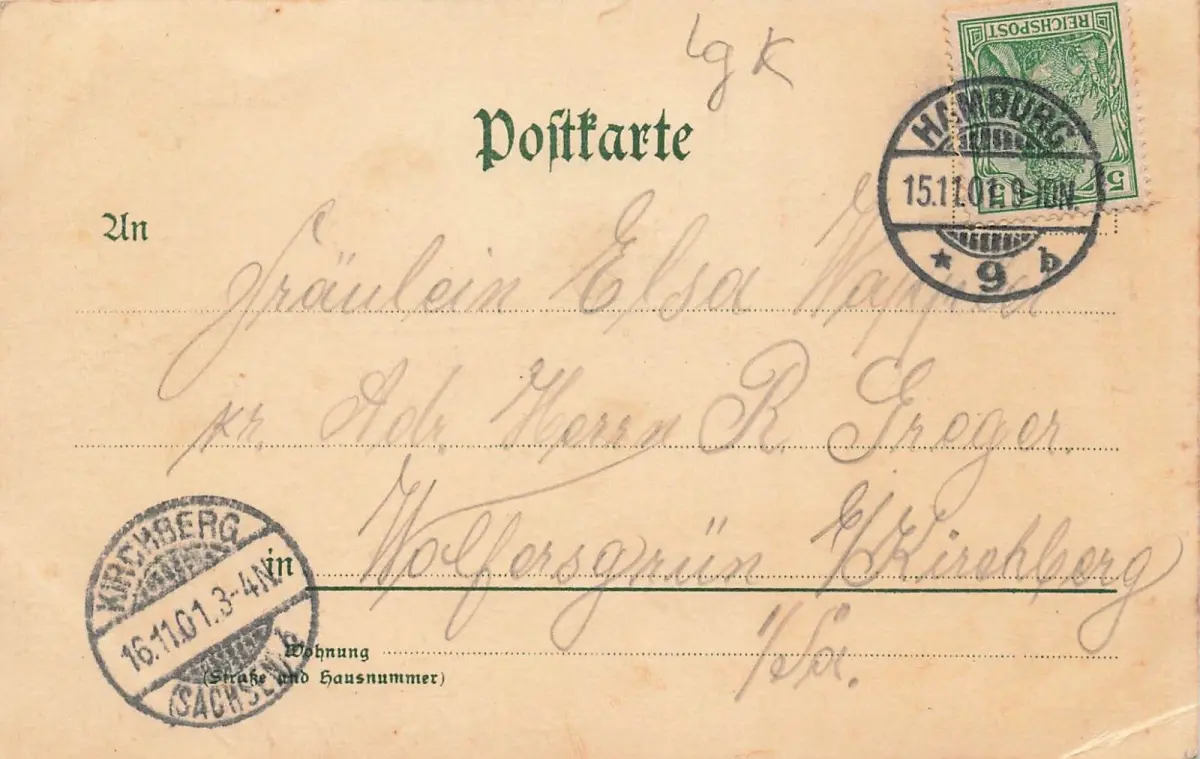 lg K
REICHSPOST
5 5
Postkarte
HAMBURG
15.11.01. 9-10N.
* 9 b
An
Fräulein Elsa
pr. Adr. Herrn R. Greger.
Wolfersgrün b/Kirchberg
i/Sa.
in
KIRCHBERG
16.11.01. 3-4N.
(SACHSEN) b
Wohnung
(Straße und Hausnummer)